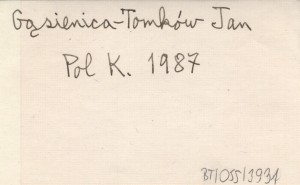 Gąsienica-Tomków Jan
Pol K. 1987
BT/OSS/3934